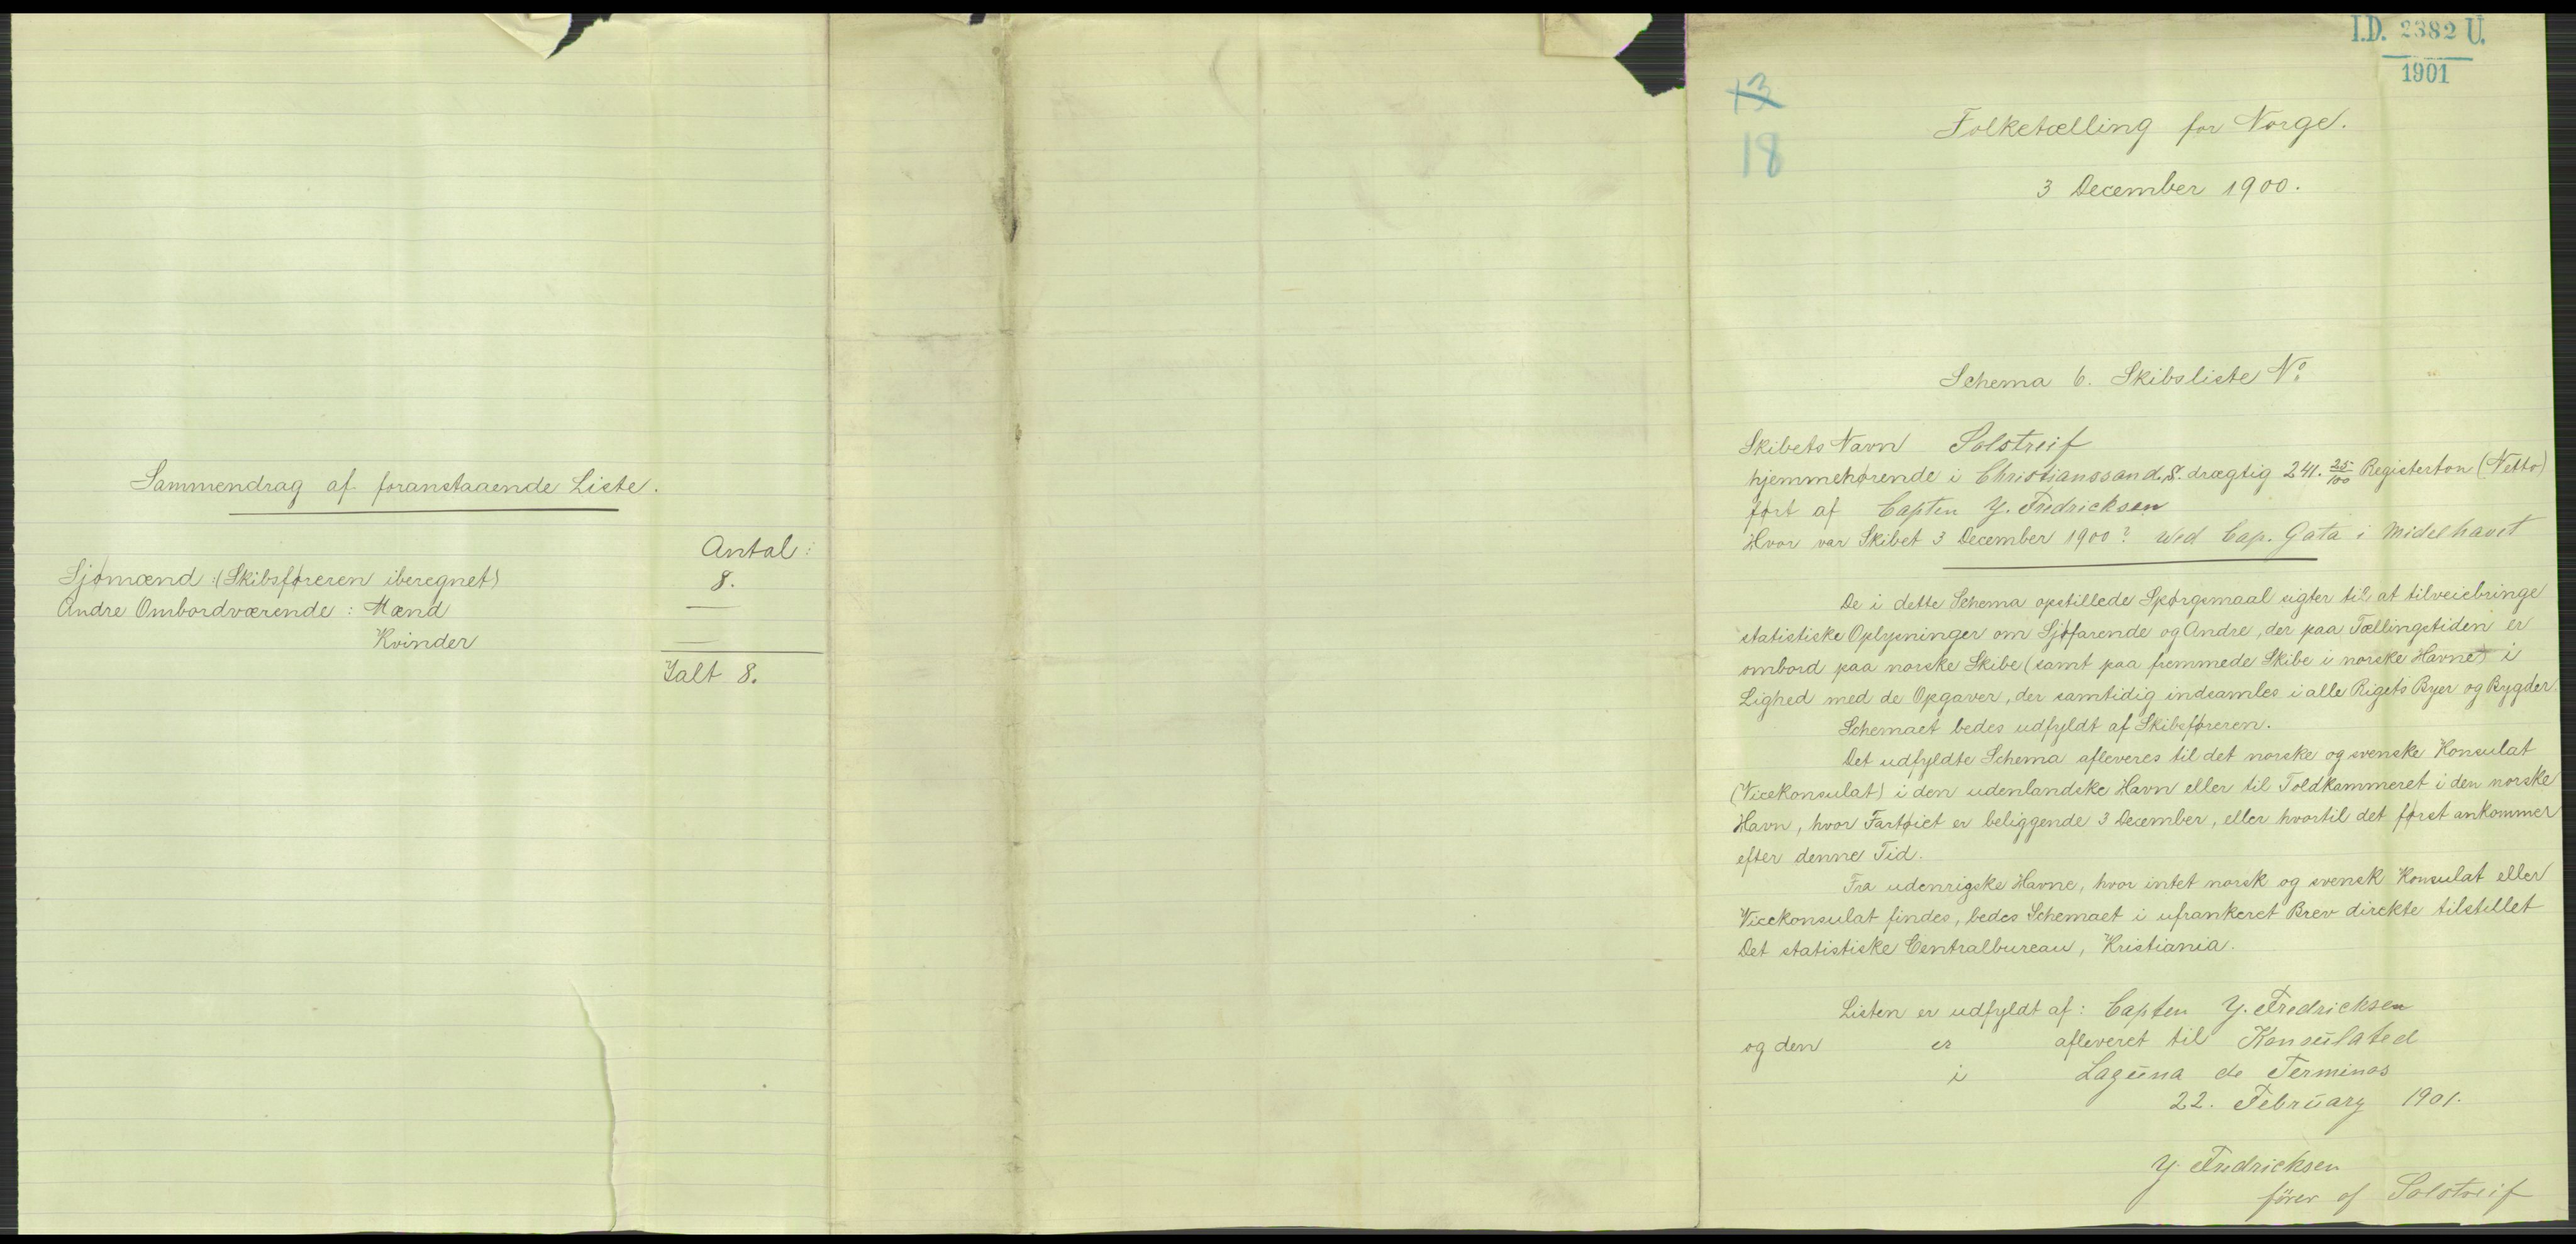 Sammendrag af foranstaaende Liste.
Antal:
Sjømænd: (Skibsføreren iberegnet) 8.
Andre Ombordværende: Mænd —
Kvinder —
Ialt 8.
I.D. 2382 U.
1901
13
18
Folketælling for Norge.
3 December 1900.
Schema 6. Skibsliste No
Skibets Navn Solstreif
hjemmehørende i Christianssand. S. drægtig 241. 25/100 Registerton (Netto)
ført af Capten Y. Fredricksen
Hvor var Skibet 3 December 1900? Wed Cap. Gata i Midelhavet
De i dette Schema opstillede Spørgsmaal sigter til at tilveiebringe
statistiske Oplysninger om Sjøfarende og Andre, der paa Tællingstiden er
ombord paa norske Skibe (samt paa fremmede Skibe i norske Havne) i
Lighed med de Opgaver, der samtidig indsamles i alle Rigets Byer og Bygder.
Schemaet bedes udfyldt af Skibsføreren.
Det udfyldte Schema afleveres til det norske og svenske Konsulat
(Vicekonsulat) i den udenlandske Havn eller til Toldkammeret i den norske
Havn, hvor Fartøiet er beliggende 3 December, eller hvortil det først ankommer
efter denne Tid.
Fra udenrigske Havne, hvor intet norsk og svensk Konsulat eller
Vicekonsulat findes, bedes Schemaet i ufrankeret Brev direkte tilstillet
Det statistiske Centralbureau, Kristiania.
Listen er udfyldt af: Capten Y. Fredricksen
og den er afleveret til Konsūlated
i Lagūna de Terminos
22. Febrūary 1901.
Y. Fredricksen
förer af Solstreif